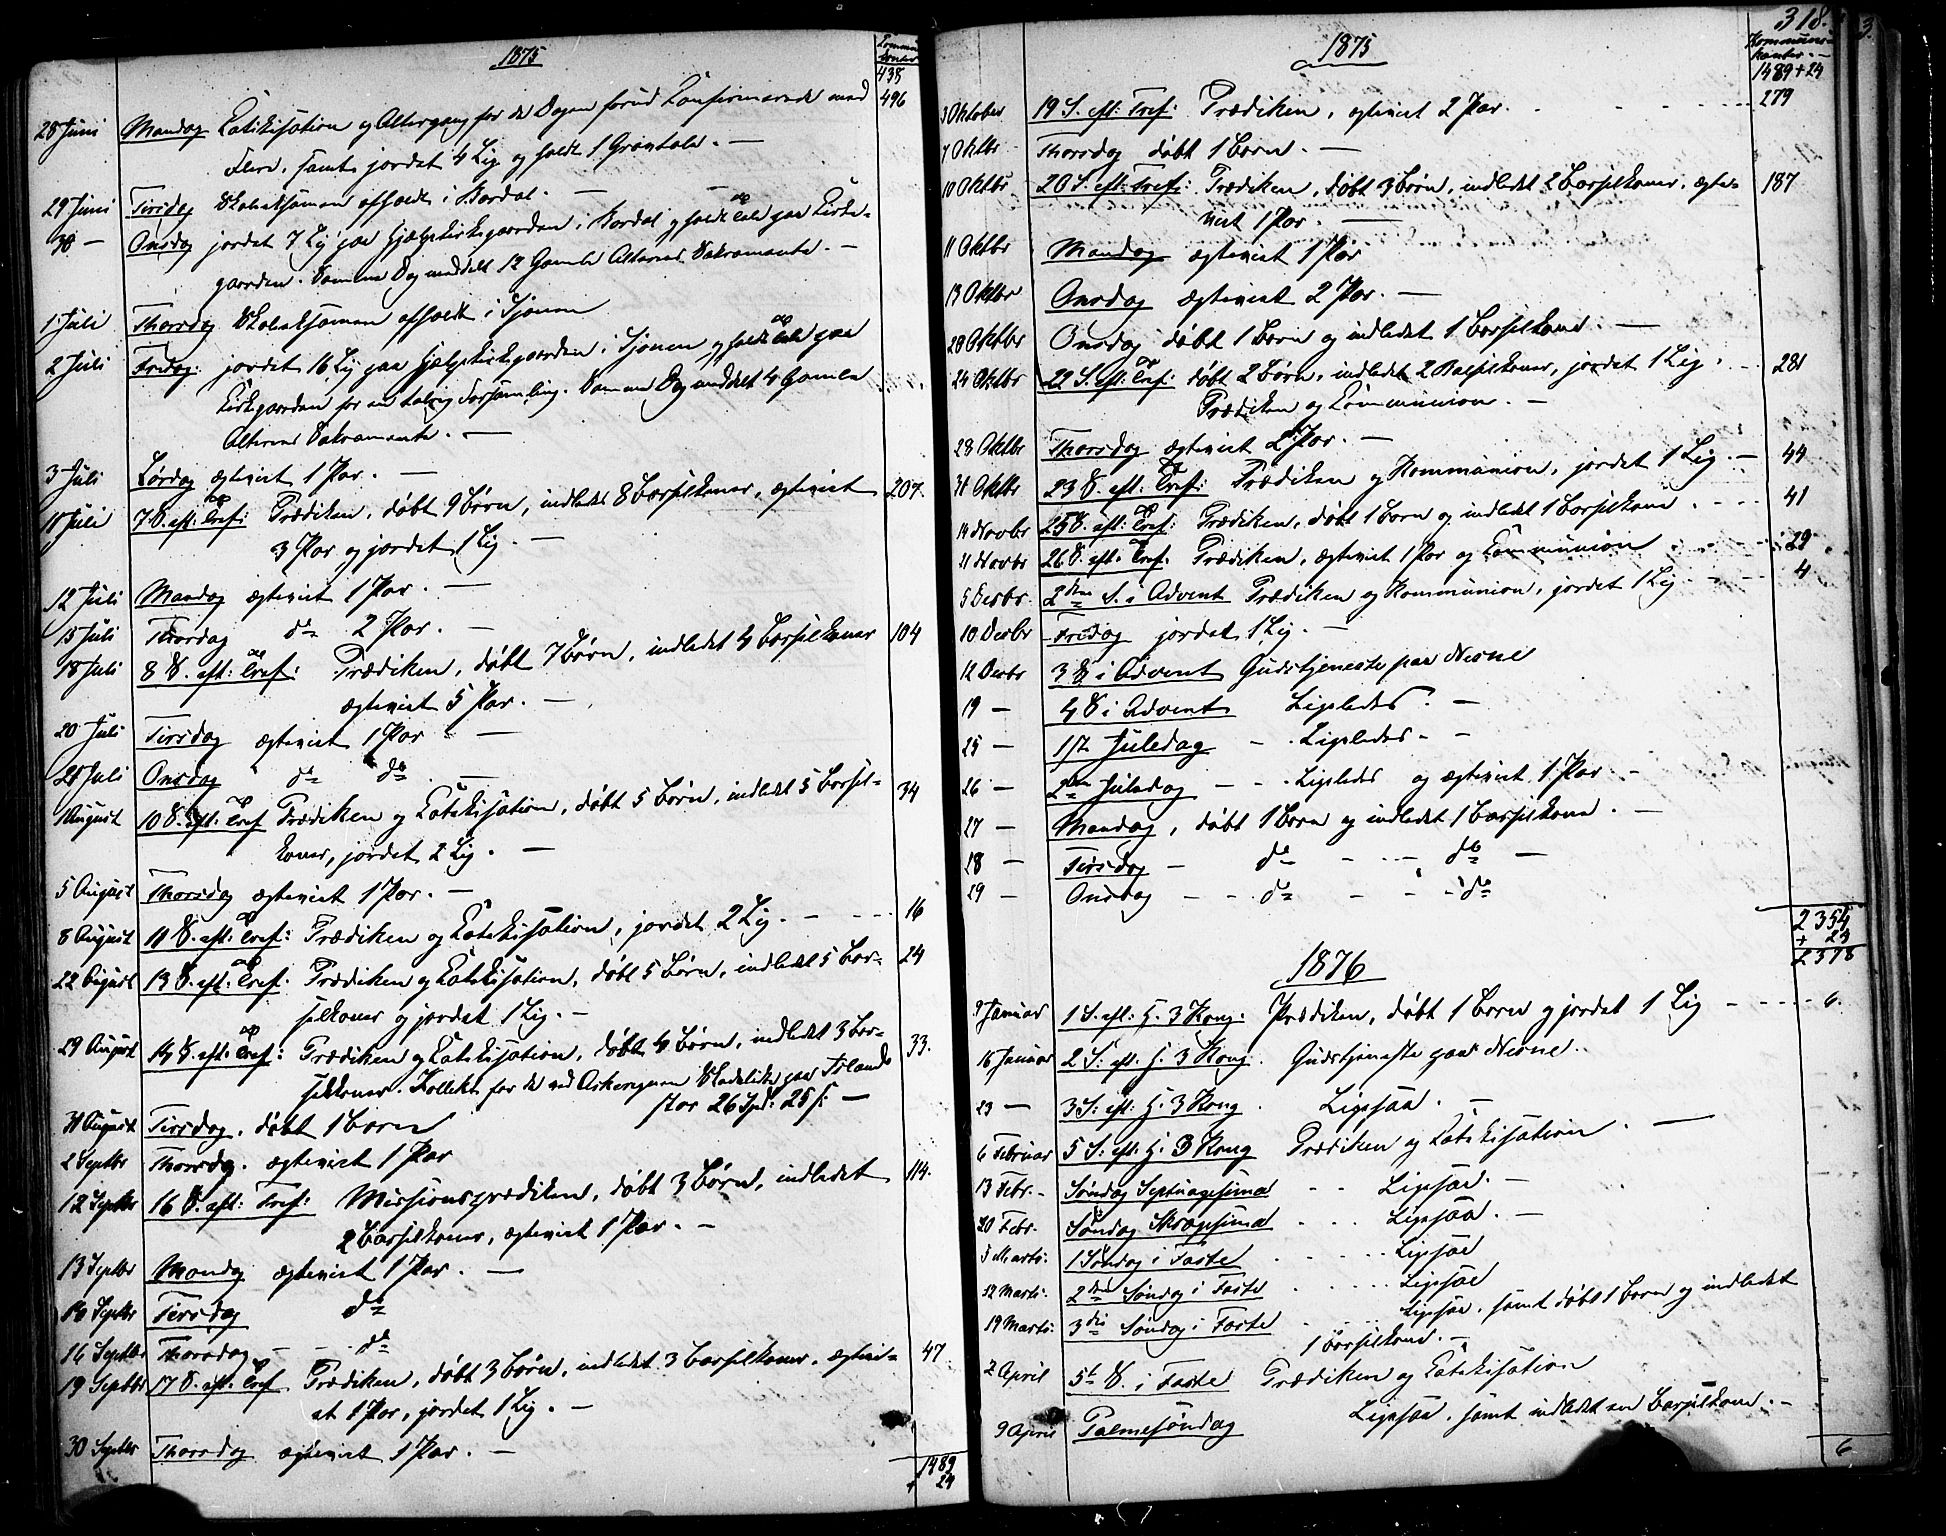 1875
Commu-
kanter
438
28 Juni Mandag Catikisation og Altergang for de Dagen forud Confirmerede med 496
Flere, samt jordet 4 Lig og holdt 1 Gravtale. —
29 Juni Tirsdag Skoleksamen afholdt i Bardal. —
30 — Onsdag jordet 7 Lig paa Hjelpekirkegaarden i Bardal og holdt Tale paa Kirke-
gaarden. Samme Dag meddelt 12 Gamle Alterens Sakramente. —
1 Juli Thorsdag Skoleksamen afholdt i Sjonen
2 Juli Fredag: jordet 16 Lig paa Hjelpekirkegaarden i Sjonen og holdt Tale paa
Kirkegaarden for en talrig Forsamling. Samme Dag meddelt 4 Gamle
Alterens Sakramente. —
3 Juli Lørdag ægteviet 1 Par. —
11 Juli 7 S. eft: Tref: Prædiken, døbt 9 Børn, indledet 8 Barselkoner, ægteviet 207.
3 Par og jordet 1 Lig. —
12 Juli Mandag ægteviet 1 Par. —
15 Juli Thorsdag do 2 Par. —
18 Juli 8 S. eft: Tref: Prædiken, døbt 7 Børn, indledet 4 Barselkoner 104
ægteviet 5 Par. —
20 Juli Tirsdag ægteviet 1 Par —
21 Juli Onsdag do do. —
1 August 10 S. eft: Tref Prædiken og Catekisation, døbt 5 Børn, indledet 5 Barsel- 34
koner, jordet 2 Lig. —
5 August Thorsdag ægteviet 1 Par. —
8 August 11 S. eft: Tref: Prædiken og Catekisation, jordet 2 Lig. — 16
22 August 13 S. eft: Tref. Prædiken og Catekisation, døbt 5 Børn, indledet 5 Bar- 24
selkoner og jordet 1 Lig. —
29 August 14 S. eft: Tref: Prædiken og Catekisation, døbt 4 Børn, indledet 3 Bar- 33.
selkoner. Kollekt for de ved Askeregnen Skadelidte paa Island
stor 26 Spd: 25 s: —
31 August Tirsdag. døbt 1 Barn
2 Septbr Thorsdag. ægteviet 1 Par
12 Septbr 16 S. eft: Tref: Missionsprædiken, døbt 3 Børn, indledet 114.
2 Barselkoner, ægteviet 1 Par. —
13 Septbr Mandag ægteviet 1 Par. —
14 Septbr Tirsdag do
16 Septbr Thorsdag — do
19 Septbr 17 S. eft. Tref. Prædiken, døbt 3 Børn, indledet 3 Barselkoner, ægtevi- 47
et 1 Par, jordet 1 Lig. —
30 Septbr Thorsdag ægteviet 1 Par. —
1489
+ 24
318.
1875
Kommuni-
kanter
1489 + 24
3 Oktober 19 S. eft: Tref: Prædiken, ægteviet 2 Par. 279
7 Oktbr Thorsdag døbt 1 Barn. —
10 Oktbr 20 S. eft: Tref: Prædiken, døbt 3 Børn, indledet 2 Barselkoner, ægte- 187
viet 1 Par. —
11 Oktbr Mandag ægteviet 1 Par
13 Oktbr Onsdag ægteviet 2 Par. —
20 Oktbr Onsdag døbt 1 Barn og indledet 1 Barselkone. —
24 Oktbr 22 S. eft: Tref: døbt 2 Børn, indledet 2 Barselkoner, jordet 1 Lig. 281
Prædiken og Communion. —
28 Oktbr Thorsdag ægteviet 2 Par. —
31 Oktbr 23 S. eft: Tref: Prædiken og Kommunion, jordet 1 Lig. — 44
14 Novbr 25 S. eft: Tref: Prædiken, døbt 1 Barn og indledet 1 Barselkone. 41
21 Novbr 26 S. eft: Tref. Prædiken, ægteviet 1 Par og Communion 29
5 Decbr. 2den S. i Advent Prædiken og Kommunion, jordet 1 Lig 4
10 Decbr Fredag jordet 1 Lig. —
12 Decbr 3 S i Advent Gudstjeneste paa Nesne
19 — 4 S i Advent Ligeledes. —
25 — 1ste Juledag — Ligeledes. —
26 — 2den Juledag — Ligeledes og ægteviet 1 Par —
27 — Mandag, døbt 1 Barn og indledet 1 Barselkone. —
18 — Tirsdag — do — do —
29 — Onsdag — do — do
2354
+ 24
2378
1876
9 Januar 1 S. eft: H. 3 Kong: Prædiken, døbt 1 Barn og jordet 1 Lig — 6.
16 Januar 2 S: eft. H. 3 Kong. Gudstjeneste paa Nesne.
23 — 3 S: eft: H. 3 Kong. Ligesaa. —
6 Februar 5 S: eft: H. 3 Kong Prædiken og Catekisation. —
13 Febr. Søndag Septuagesima Ligesaa. —
20 Febr. Søndag Sexagesima Ligesaa. —
5 Marts. 1 Søndag i Faste Ligesaa
12 Marts. 2den Søndag i Faste Ligesaa
19 Marts. 3die Søndag i Faste Ligesaa, samt døbt 1 Barn og indledet
1 Barselkone. —
2 April 5te S. i Faste Prædiken og Catekisation
9 April Palmesøndag Ligesaa, samt indledet en Barselkone. —
6